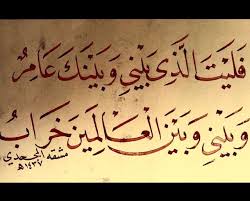 فَلَيْتَ الَّذِي بَيْنِي وَبَيْنَكَ عَامِرُ
وَبَيْنِي وَبَيْنَ الْعَالَمِينَ خَرَابُ
مشقه الجعدي
١٤٣٧هـ